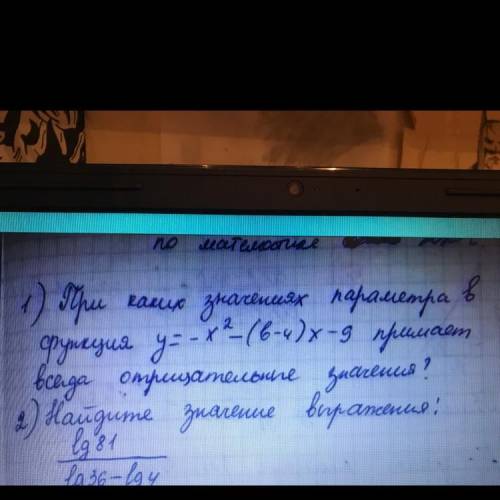 по математике
1) При каких значениях параметра в
функция y = -x² - (в-4)x - 9 примает
всегда отрицательные значения?
2) Найдите значение выражения:
lg 81
lg 36 - lg 4